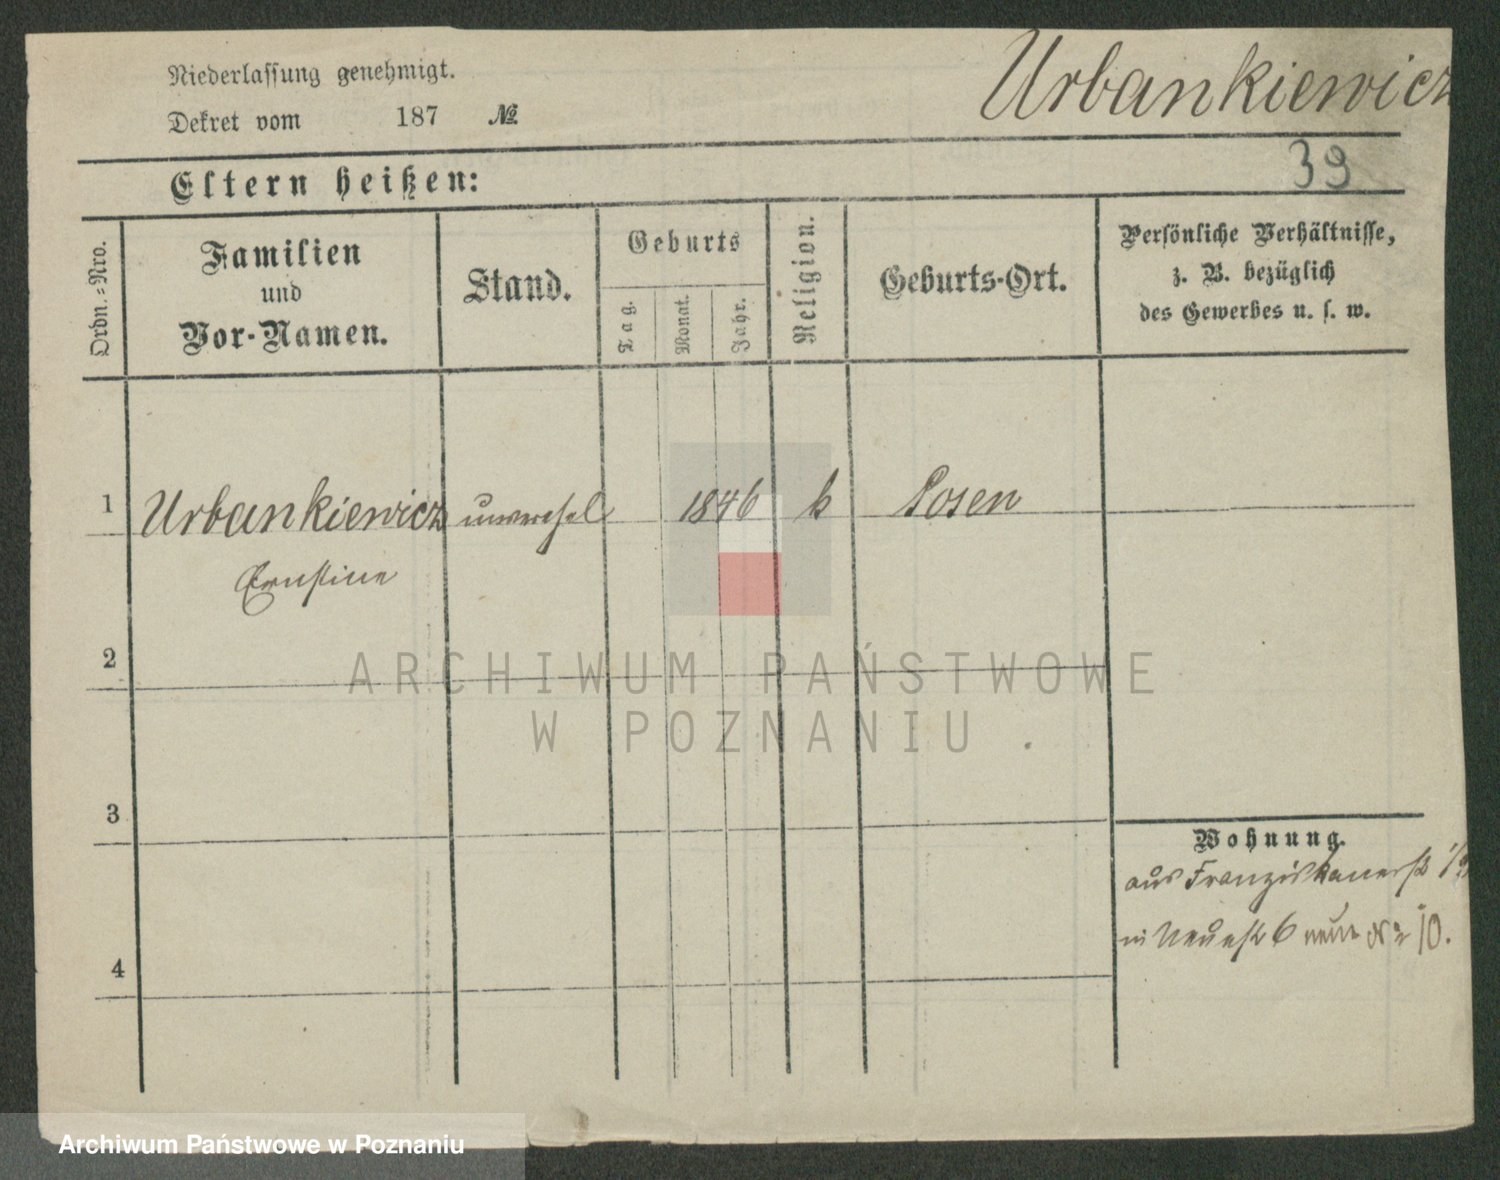 Niederlassung genehmigt.
Urbankiewicz
Dekret vom 187 №
39
Eltern heißen:
Ordn.-Nro.
Familien
und
Vor-Namen.
Stand.
Geburts
Tag.
Monat.
Jahr.
Religion.
Geburts-Ort.
Persönliche Verhältnisse,
z. B. bezüglich
des Gewerbes u. s. w.
1 Urbankiewicz 1846 k Posen
Ernstine
2
3
Wohnung.
aus Franziskanerst
in Neuest 6 neue No 10.
4
ARCHIWUM PAŃSTWOWE
W POZNANIU .
Archiwum Państwowe w Poznaniu